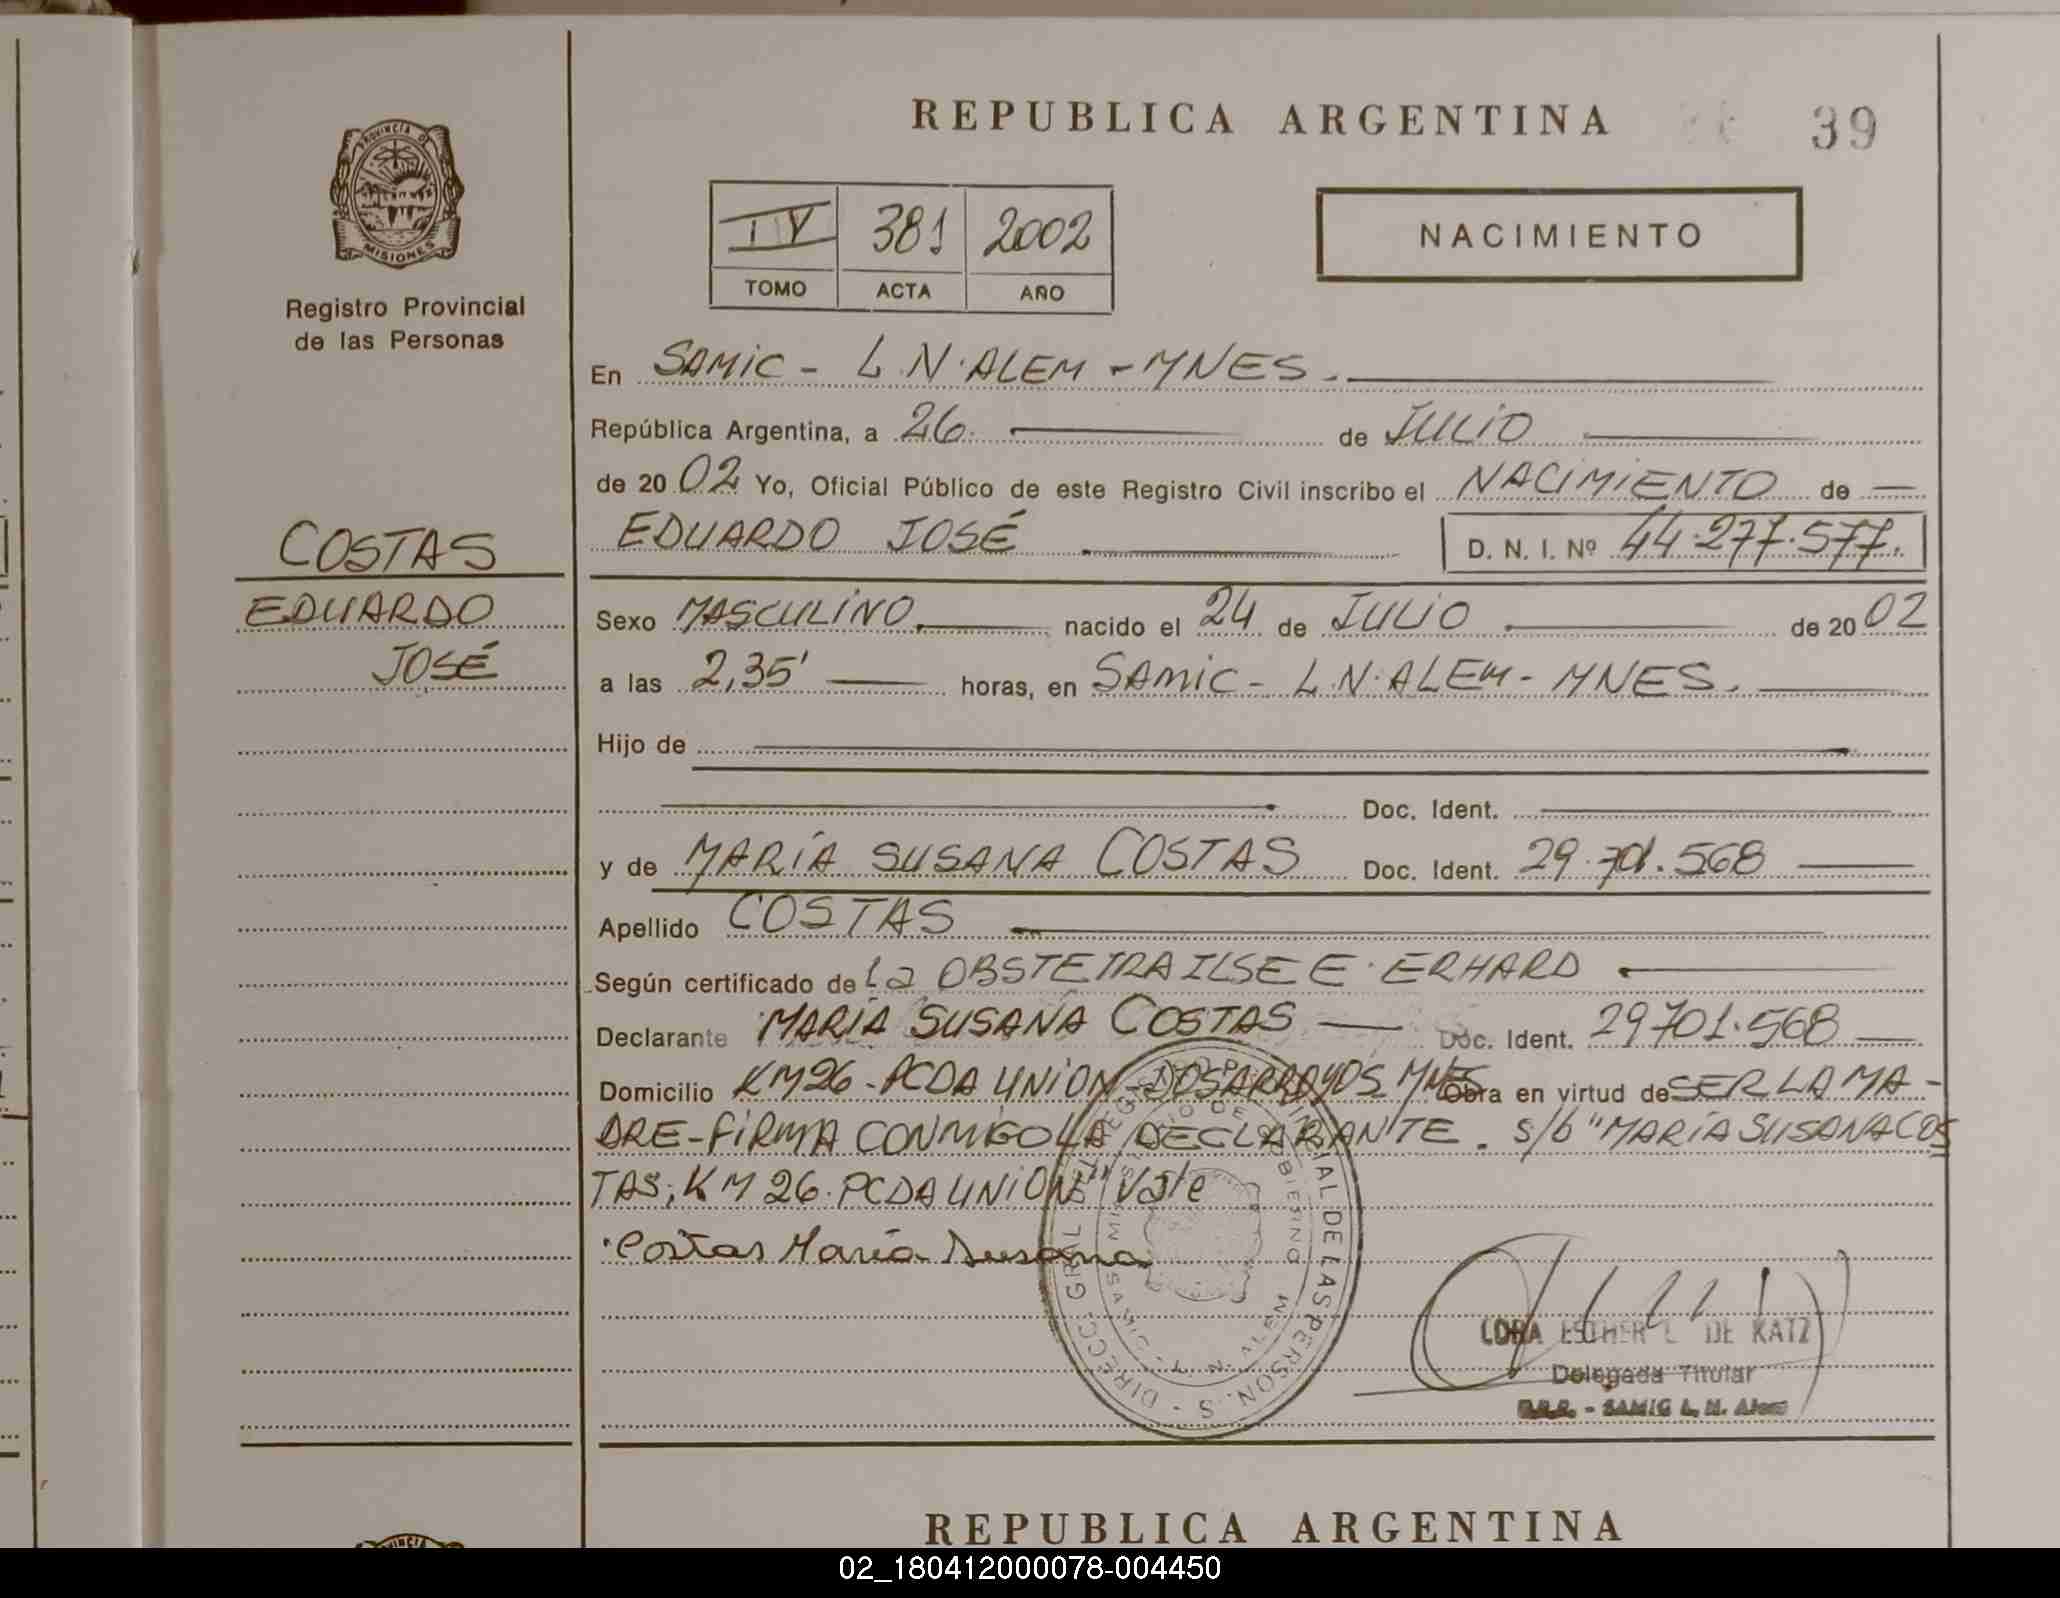 REPUBLICA ARGENTINA
39
PROVINCIA DE
MISIONES
Registro Provincial
de las Personas
IV 381 2002
TOMO ACTA AÑO
NACIMIENTO
En SAMIC - L.N. ALEM - MNES.
República Argentina, a 26. de JULIO
de 2002 Yo, Oficial Público de este Registro Civil inscribo el NACIMIENTO de
EDUARDO JOSÉ D. N. I. Nº 44.277.577.
COSTAS
EDUARDO
JOSÉ
Sexo MASCULINO. nacido el 24 de JULIO de 2002
a las 2,35' horas, en SAMIC - L.N. ALEM - MNES.
Hijo de
Doc. Ident.
y de MARÍA SUSANA COSTAS Doc. Ident. 29.701.568
Apellido COSTAS
Según certificado de La OBSTETRA ILSE E. ERHARD
Declarante MARÍA SUSANA COSTAS Doc. Ident. 29701.568
Domicilio KM26 - PCDA UNION - DOSARROYOS MNES Obra en virtud de SER LA MA-
DRE-FIRMA CONMIGO LA DECLARANTE. s/b "MARÍA SUSANA COS
TAS; KM 26. PCDA UNION" Vale
Costas María Susana
DIRECC. GRAL. DEL REGISTRO PROVINCIAL DE LAS PERSONAS
MINISTERIO DE GOBIERNO
SAMIC - L. N. ALEM
ESTHER L. DE KATZ
Delegada Titular
SAMIC L. N. Alem
REPUBLICA ARGENTINA
02_180412000078-004450